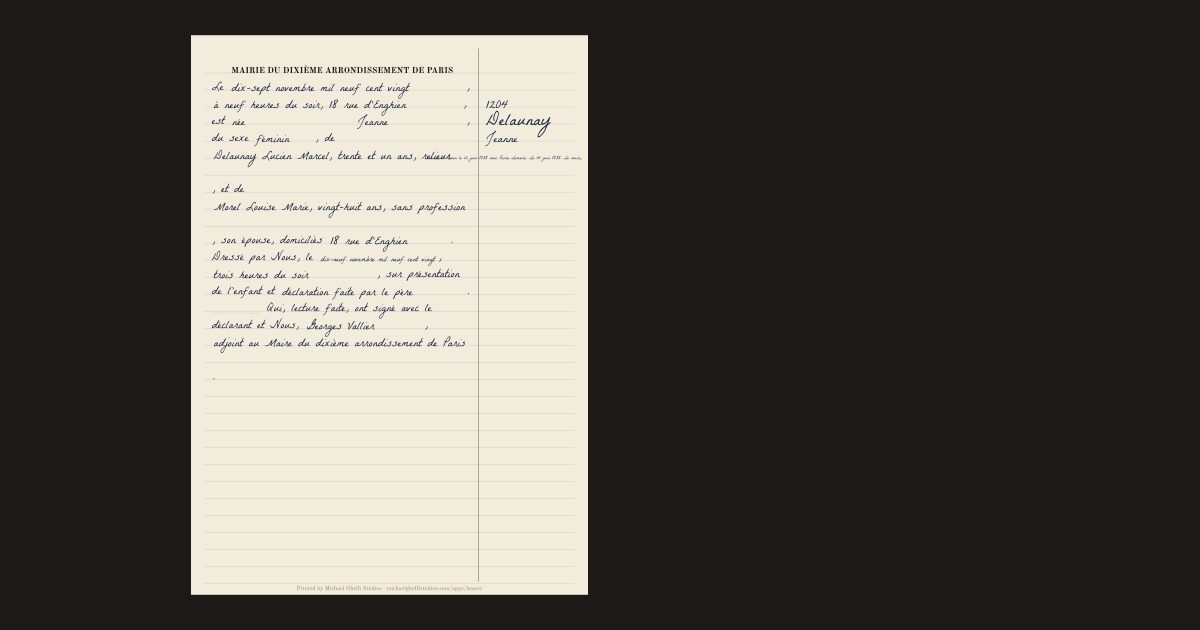 MAIRIE DU DIXIÈME ARRONDISSEMENT DE PARIS
Le dix-sept novembre mil neuf cent vingt ,
à neuf heures du soir, 18 rue d'Enghien ,
1204
est née Jeanne ,
Delaunay
du sexe féminin , de
Jeanne
Delaunay Lucien Marcel, trente et un ans, relieur
, et de
Morel Louise Marie, vingt-huit ans, sans profession
, son épouse, domiciliés 18 rue d'Enghien .
Dressé par Nous, le dix-neuf novembre mil neuf cent vingt ,
trois heures du soir , sur présentation
de l'enfant et déclaration faite par le père .
Qui, lecture faite, ont signé avec le
déclarant et Nous, Georges Vallier ,
adjoint au Maire du dixième arrondissement de Paris
.
Printed by Michael Ghelfi Studios · michaelghelfistudios.com/apps/bearer